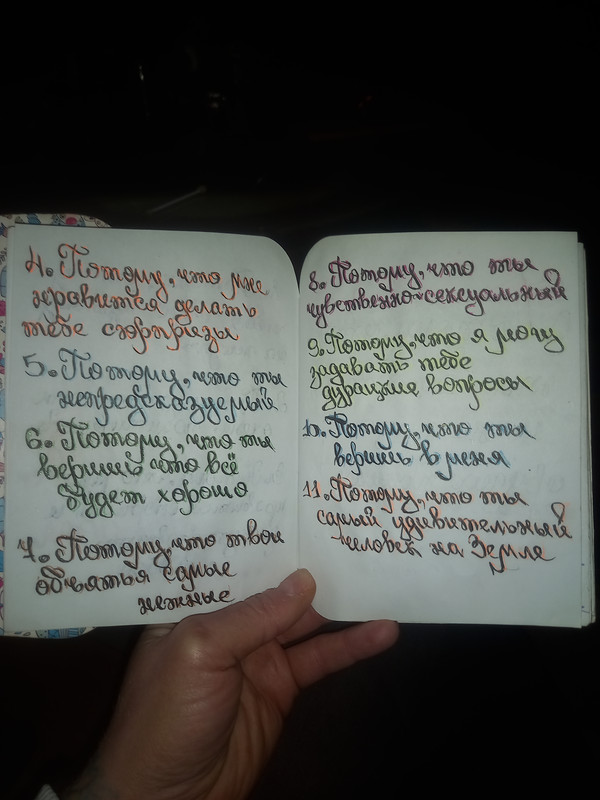 4. Потому, что мне
нравится делать
тебе сюрпризы
5. Потому, что ты
непредсказуемый
6. Потому, что ты
веришь что всё
будет хорошо
7. Потому, что твои
объятья самые
нежные
8. Потому, что ты
чувственно-сексуальный
9. Потому, что я могу
задавать тебе
дурацкие вопросы
10. Потому, что ты
веришь в меня
11. Потому, что ты
самый удивительный
человек на Земле